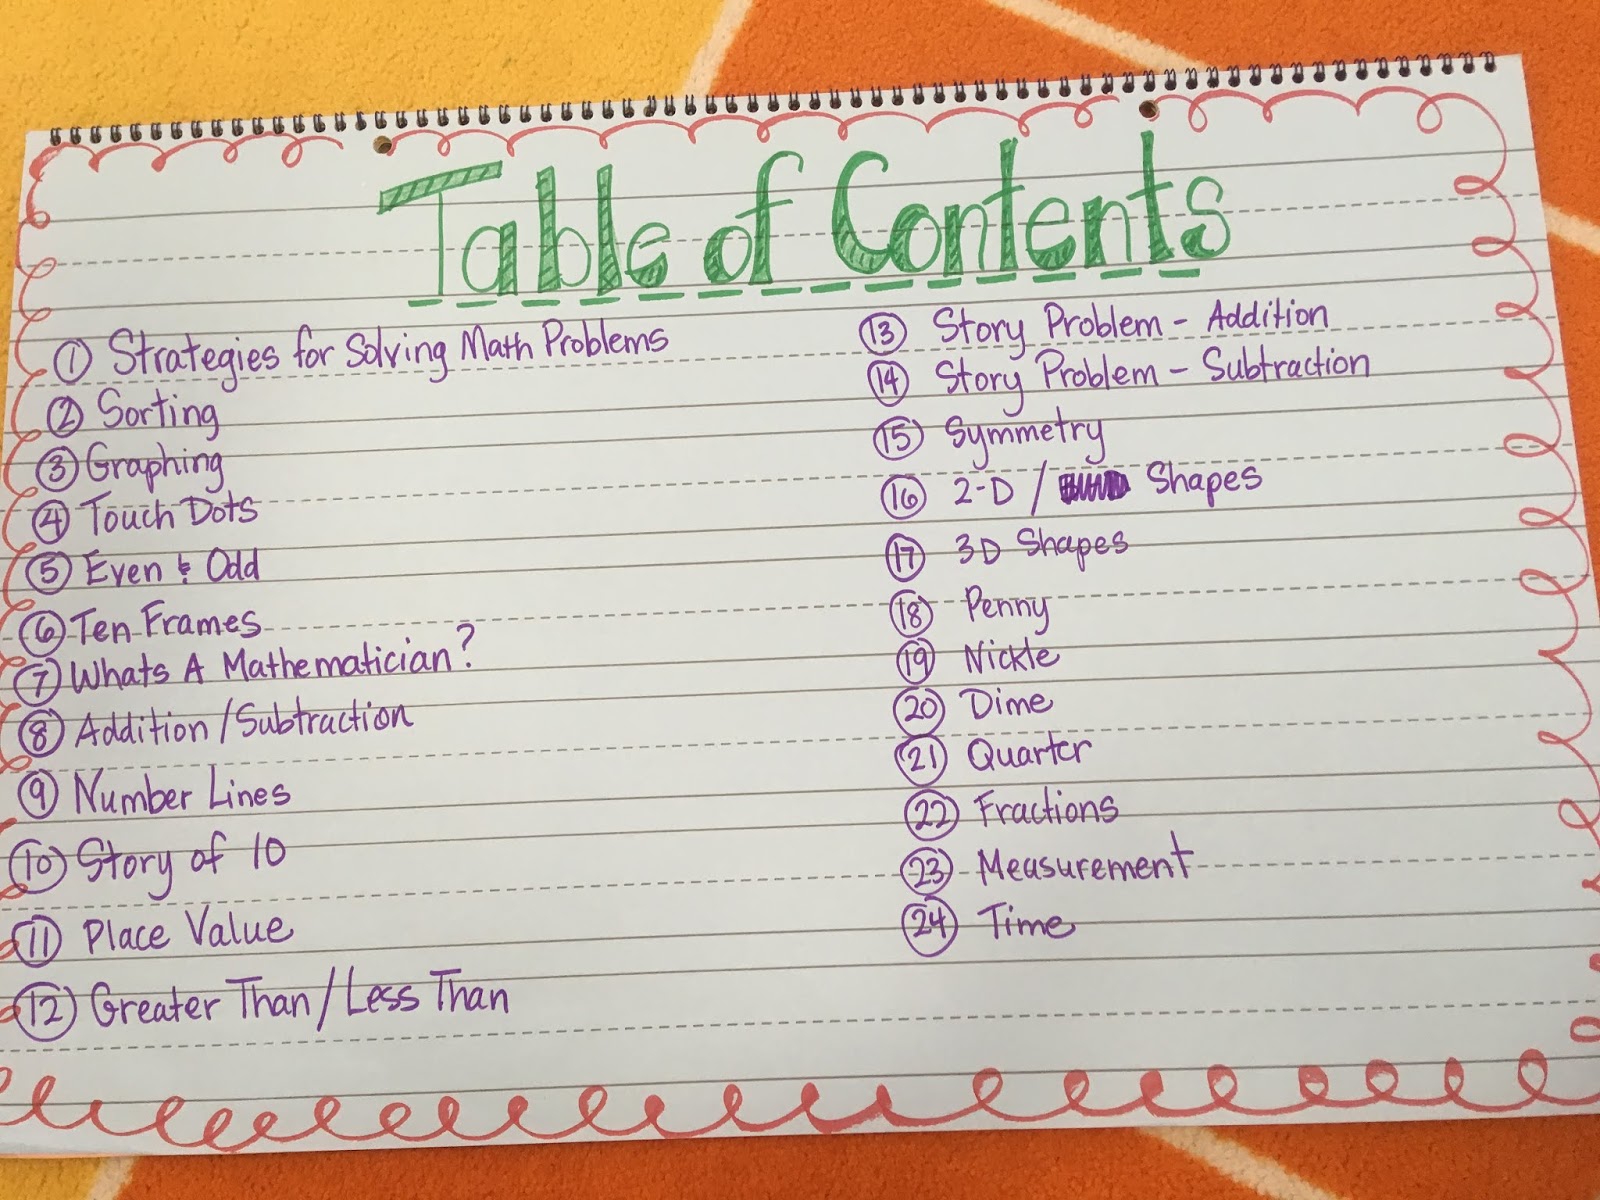 Table of Contents
1 Strategies for Solving Math Problems
2 Sorting
3 Graphing
4 Touch Dots
5 Even & Odd
6 Ten Frames
7 Whats A Mathematician?
8 Addition/Subtraction
9 Number Lines
10 Story of 10
11 Place Value
12 Greater Than/Less Than
13 Story Problem - Addition
14 Story Problem - Subtraction
15 Symmetry
16 2-D / Shapes
17 3D Shapes
18 Penny
19 Nickle
20 Dime
21 Quarter
22 Fractions
23 Measurement
24 Time